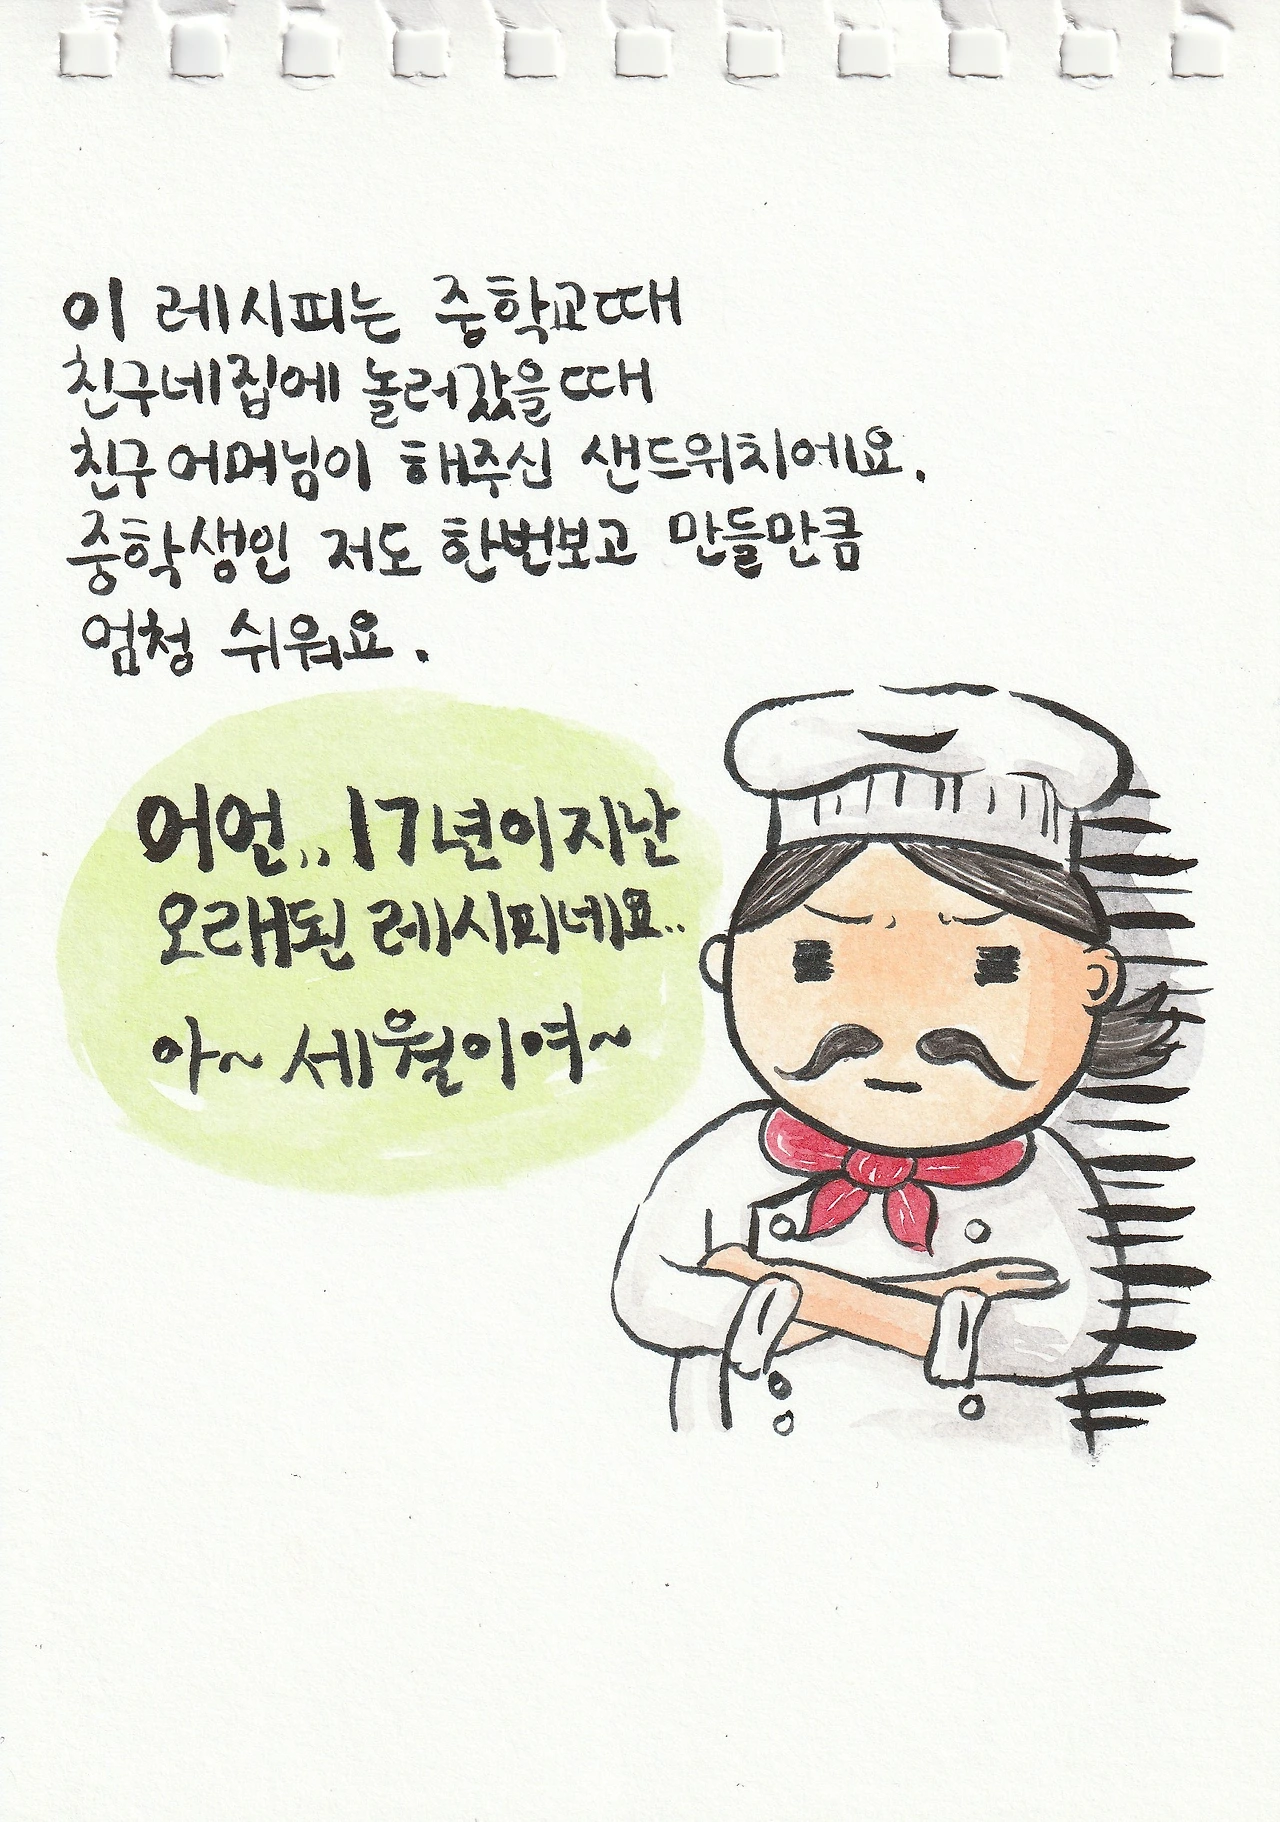 이 레시피는 중학교때
친구네집에 놀러갔을때
친구어머님이 해주신 샌드위치에요.
중학생인 저도 한번보고 만들만큼
엄청 쉬워요.
어언.. 17년이지난
오래된 레시피네요..
아~ 세월이여~